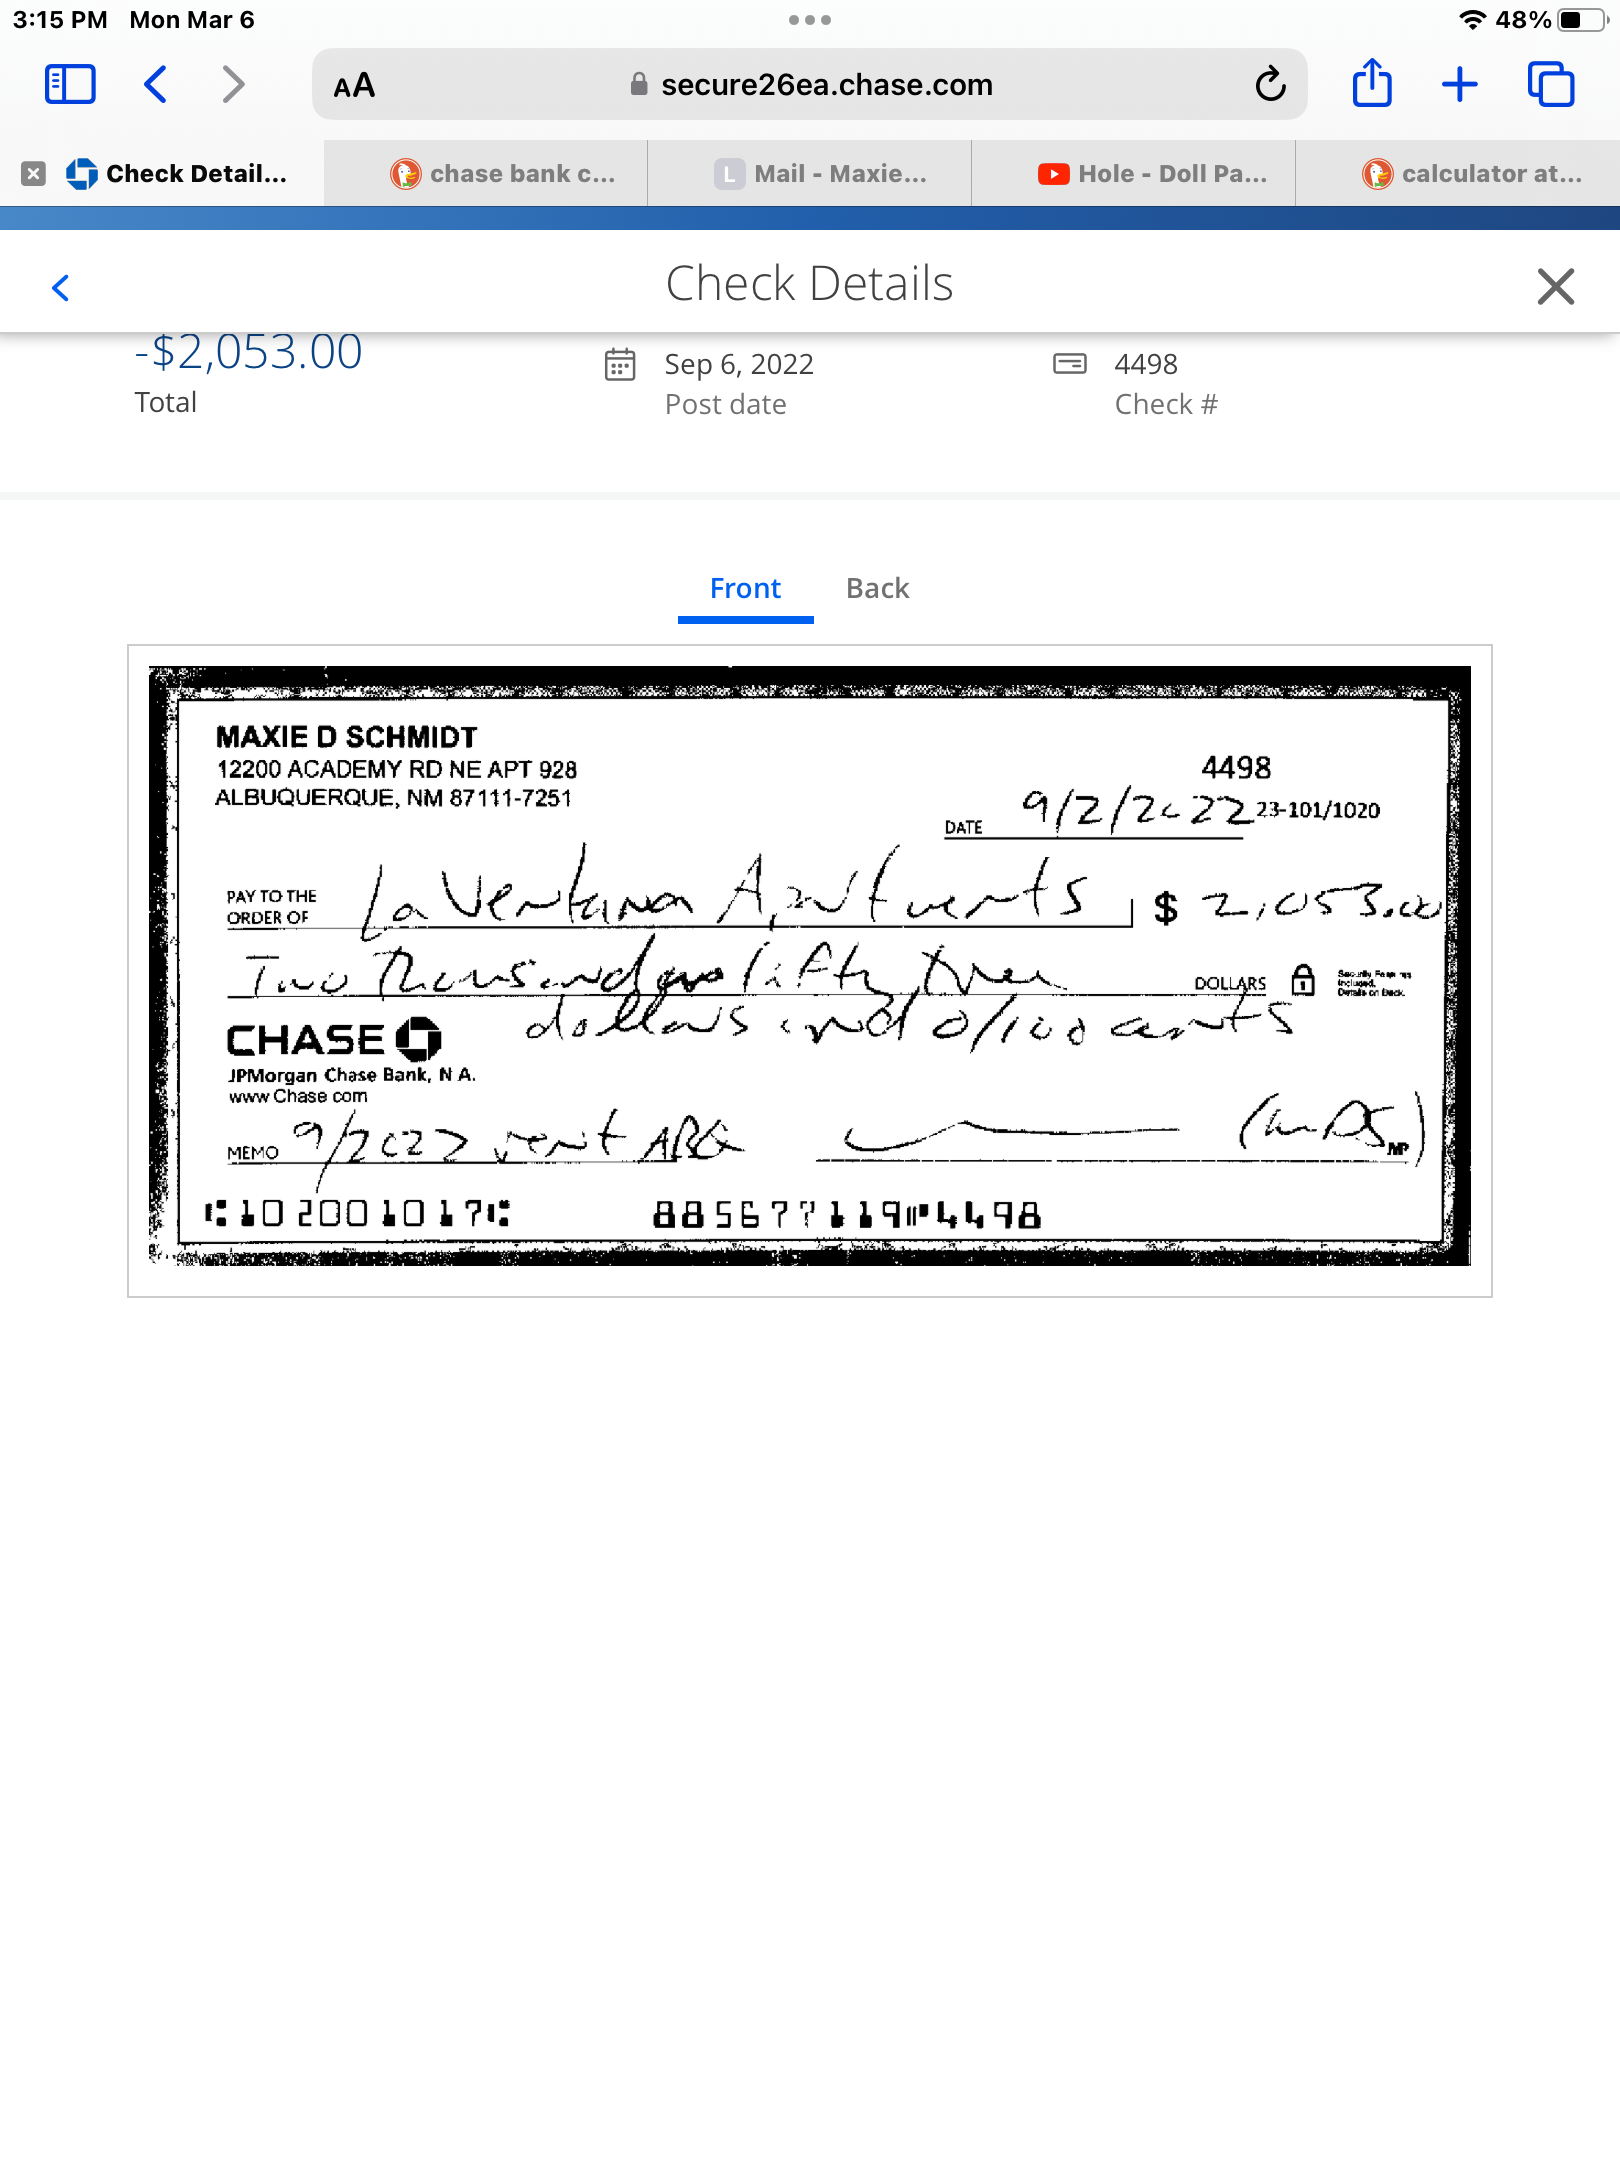 3:15 PM Mon Mar 6 48%
AA secure26ea.chase.com
Check Detail... chase bank c... L Mail - Maxie... Hole - Doll Pa... calculator at...
Check Details
-$2,053.00 Sep 6, 2022 4498
Total Post date Check #
Front Back
MAXIE D SCHMIDT
12200 ACADEMY RD NE APT 928
ALBUQUERQUE, NM 87111-7251
4498
DATE 9/2/2022 23-101/1020
PAY TO THE ORDER OF La Ventana Apartments $ 2,053.00
Two thousand fifty three DOLLARS Security Features Included. Details on Back.
dollars and 0/100 cents
CHASE
JPMorgan Chase Bank, N A.
www Chase com
MEMO 9/2022 rent ABQ (MDS) MP
⑆102001017⑆ 885677119⑈4498